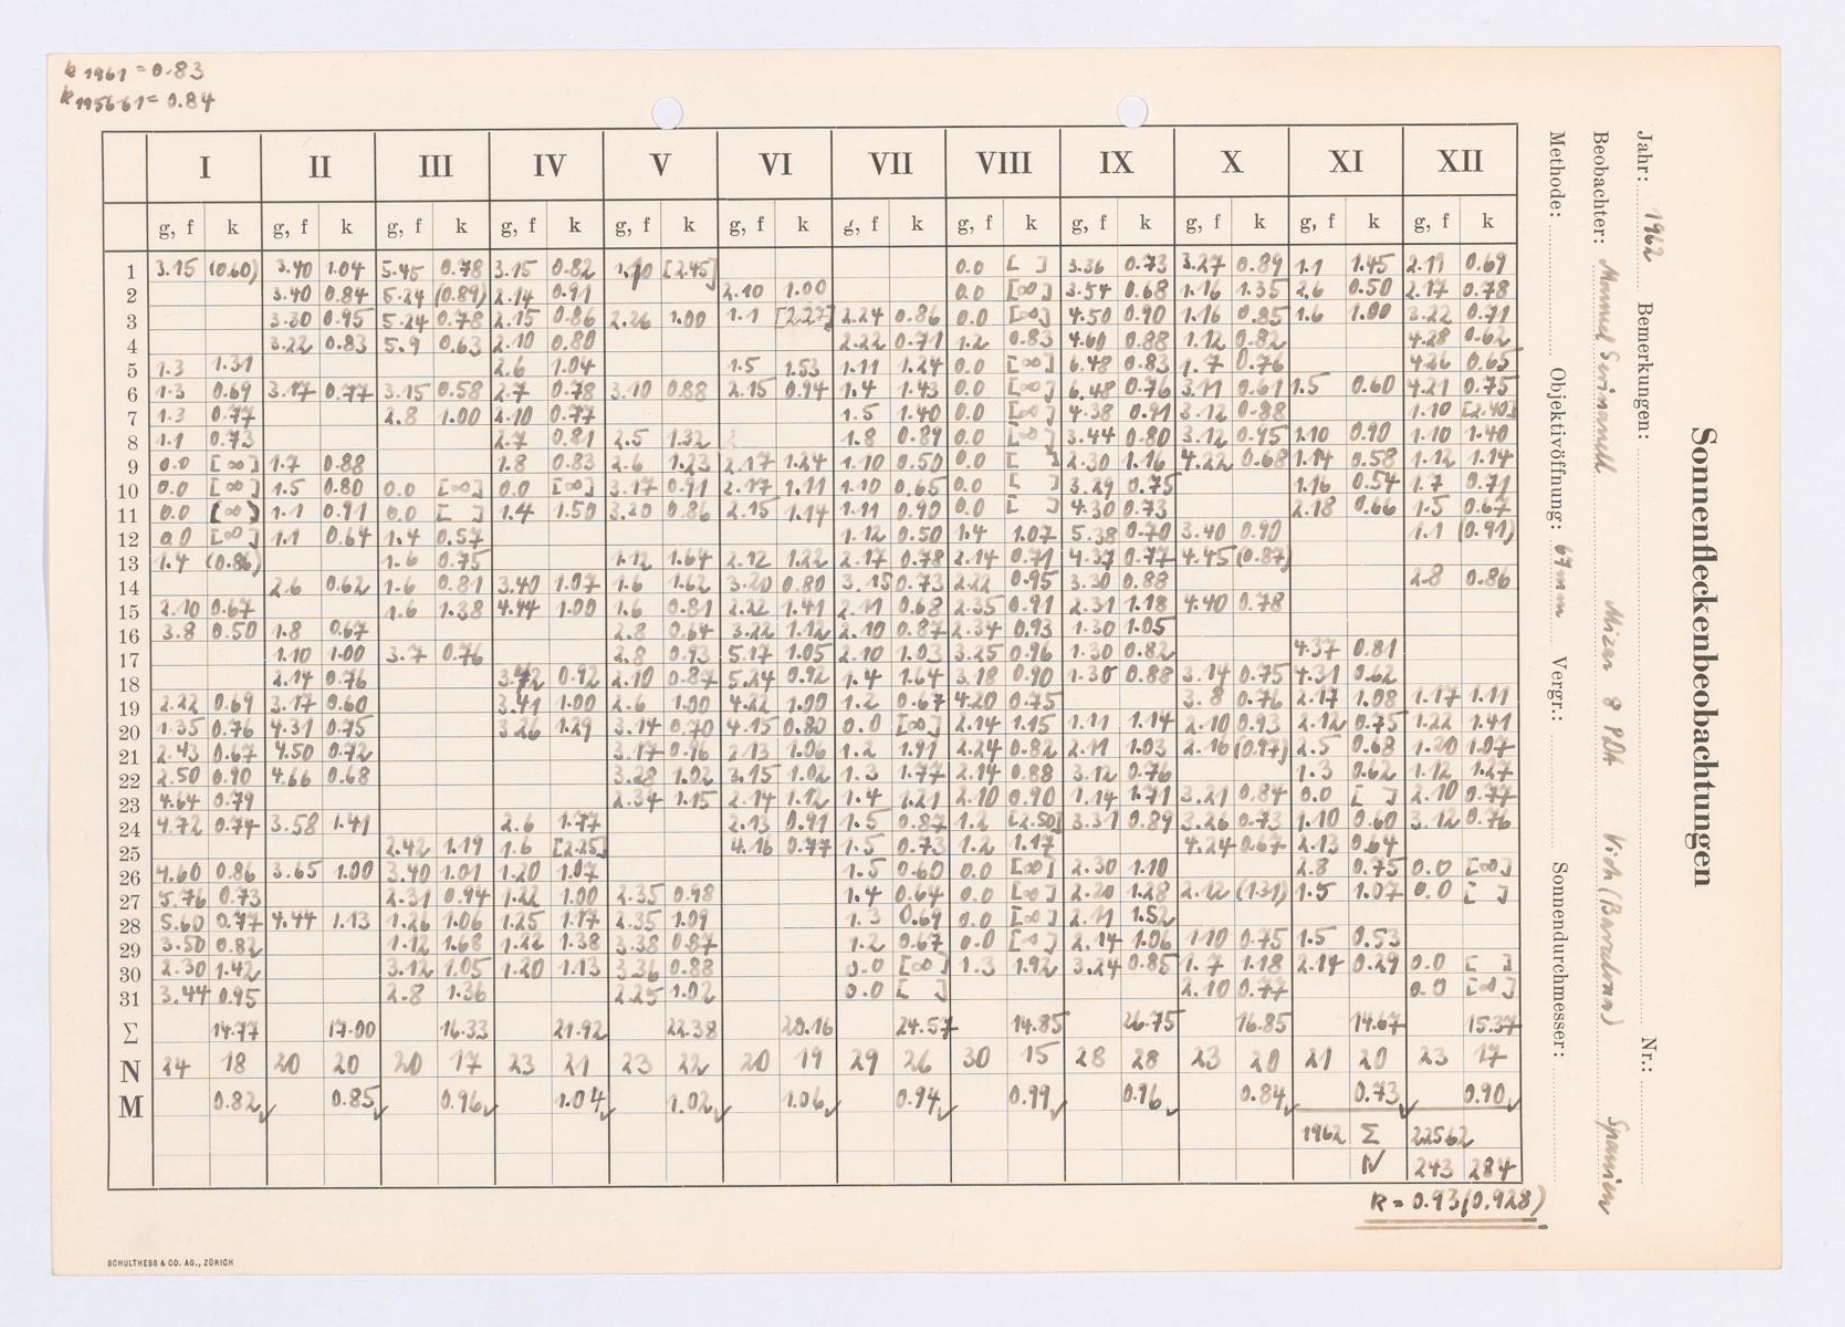 k 1961 = 0.83
k 1956-61 = 0.84
I II III IV V VI VII VIII IX X XI XII
g, f k g, f k g, f k g, f k g, f k g, f k g, f k g, f k g, f k g, f k g, f k g, f k
1 3.15 (0.60) 3.40 1.04 5.45 0.78 3.15 0.82 [2.45] 0.0 [ ] 3.36 0.73 3.27 0.89 1.1 1.45 2.11 0.69
2 3.40 0.84 5.24 (0.89) 2.14 0.91 2.10 1.00 0.0 [∞] 3.54 0.68 1.16 1.35 2.6 0.50 2.17 0.78
3 3.30 0.95 5.24 0.78 2.15 0.86 2.26 1.00 1.1 [2.27] 2.24 0.86 0.0 [∞] 4.50 0.90 1.16 0.85 1.6 1.00 3.22 0.71
4 3.22 0.83 5.9 0.63 2.10 0.80 2.22 0.71 1.2 0.83 4.60 0.88 1.12 0.82 4.28 0.62
5 1.3 1.31 2.6 1.04 1.5 1.53 1.11 1.24 0.0 [∞] 6.48 0.83 1.7 0.76 4.26 0.65
6 1.3 0.69 3.17 0.77 3.15 0.58 2.7 0.78 3.10 0.88 2.15 0.94 1.4 1.43 0.0 [∞] 6.48 0.76 3.11 0.61 1.5 0.60 4.21 0.75
7 1.3 0.77 2.8 1.00 2.10 0.77 1.5 1.40 0.0 [∞] 4.38 0.91 3.12 0.88 1.10 [2.40]
8 1.1 0.73 2.7 0.81 2.5 1.32 1.8 0.89 0.0 [∞] 3.44 0.80 3.12 0.95 1.10 0.90 1.10 1.40
9 0.0 [∞] 1.7 0.88 1.8 0.83 2.6 1.23 2.17 1.24 1.10 0.50 0.0 [ ] 2.30 1.16 4.22 0.68 1.14 0.58 1.12 1.14
10 0.0 [∞] 1.5 0.80 0.0 [∞] 0.0 [∞] 3.17 0.91 2.17 1.11 1.10 0.65 0.0 [ ] 3.29 0.75 1.16 0.54 1.7 0.71
11 0.0 [∞] 1.1 0.91 0.0 [ ] 1.4 1.50 3.20 0.86 2.15 1.14 1.11 0.90 0.0 [ ] 4.30 0.73 2.18 0.66 1.5 0.67
12 0.0 [∞] 1.1 0.64 1.4 0.57 1.12 0.50 1.4 1.07 5.38 0.70 3.40 0.90 1.1 (0.91)
13 1.4 (0.86) 1.6 0.75 1.12 1.64 2.12 1.22 2.17 0.78 2.14 0.71 4.37 0.77 4.45 (0.87)
14 2.6 0.62 1.6 0.81 3.40 1.07 1.6 1.62 3.20 0.80 3.15 0.73 2.22 0.95 3.30 0.88 2.8 0.86
15 2.10 0.67 1.6 1.38 4.44 1.00 1.6 0.81 2.22 1.41 2.11 0.68 2.35 0.91 2.31 1.18 4.40 0.78
16 3.8 0.50 1.8 0.67 2.8 0.64 3.22 1.12 2.10 0.87 2.34 0.93 1.30 1.05
17 1.10 1.00 3.7 0.76 2.8 0.93 5.17 1.05 2.10 1.03 3.25 0.96 1.30 0.82 4.37 0.81
18 2.14 0.76 3.42 0.92 2.10 0.87 5.24 0.92 1.4 1.64 3.18 0.90 1.30 0.88 3.14 0.75 4.31 0.62
19 2.22 0.69 3.17 0.60 3.41 1.00 2.6 1.00 4.22 1.00 1.2 0.67 4.20 0.75 3.8 0.76 2.17 1.08 1.17 1.11
20 1.35 0.76 4.31 0.75 3.26 1.29 3.14 0.70 4.15 0.80 0.0 [∞] 2.14 1.15 1.11 1.14 2.10 0.93 2.12 0.75 1.22 1.41
21 2.43 0.67 4.50 0.72 3.17 0.96 2.13 1.06 1.2 1.91 2.24 0.82 2.11 1.03 2.16 (0.97) 2.5 0.68 1.20 1.07
22 2.50 0.90 4.66 0.68 3.28 1.02 3.15 1.02 1.3 1.77 2.14 0.88 3.12 0.76 1.3 0.62 1.12 1.27
23 4.64 0.79 2.34 1.15 2.14 1.12 1.4 1.21 2.10 0.90 1.14 1.71 3.21 0.84 0.0 [ ] 2.10 0.77
24 4.72 0.74 3.58 1.41 2.6 1.77 2.13 0.91 1.5 0.87 1.2 [2.50] 3.31 0.89 3.26 0.73 1.10 0.60 3.12 0.76
25 2.42 1.19 1.6 [2.25] 4.16 0.77 1.5 0.73 1.2 1.17 4.24 0.67 2.13 0.64
26 4.60 0.86 3.65 1.00 3.40 1.01 1.20 1.07 1.5 0.60 0.0 [∞] 2.30 1.10 2.8 0.75 0.0 [∞]
27 5.76 0.73 2.31 0.94 1.22 1.00 2.35 0.98 1.4 0.64 0.0 [∞] 2.20 1.28 2.12 (1.31) 1.5 1.07 0.0 [ ]
28 5.60 0.77 4.44 1.13 1.26 1.06 1.25 1.17 2.35 1.09 1.3 0.69 0.0 [∞] 2.11 1.52
29 3.50 0.82 1.12 1.68 1.22 1.38 3.38 0.87 1.2 0.67 0.0 [∞] 2.14 1.06 1.10 0.75 1.5 0.53
30 2.30 1.42 3.12 1.05 1.20 1.13 3.36 0.88 0.0 [∞] 1.3 1.92 3.24 0.85 1.7 1.18 2.14 0.29 0.0 [ ]
31 3.44 0.95 2.8 1.36 2.25 1.02 0.0 [ ] 2.10 0.77 0.0 [∞]
Σ 14.77 17.00 16.33 21.92 22.38 20.16 24.57 14.85 26.75 16.85 14.67 15.37
N 24 18 20 20 20 17 23 21 23 22 20 19 29 26 30 15 28 28 23 20 21 20 23 17
M 0.82 0.85 0.96 1.04 1.02 1.06 0.94 0.99 0.96 0.84 0.73 0.90
1962 Σ 225.62
N 243 284
K = 0.93 (0.928)
SCHULTHESS & CO. AG., ZÜRICH
Sonnenfleckenbeobachtungen
Jahr: 1962 Bemerkungen: Nr.:
Beobachter: Manuel Vich (Barcelona) Spanien
Methode: Objektivöffnung: 67 mm Vergr.: Sonnendurchmesser: